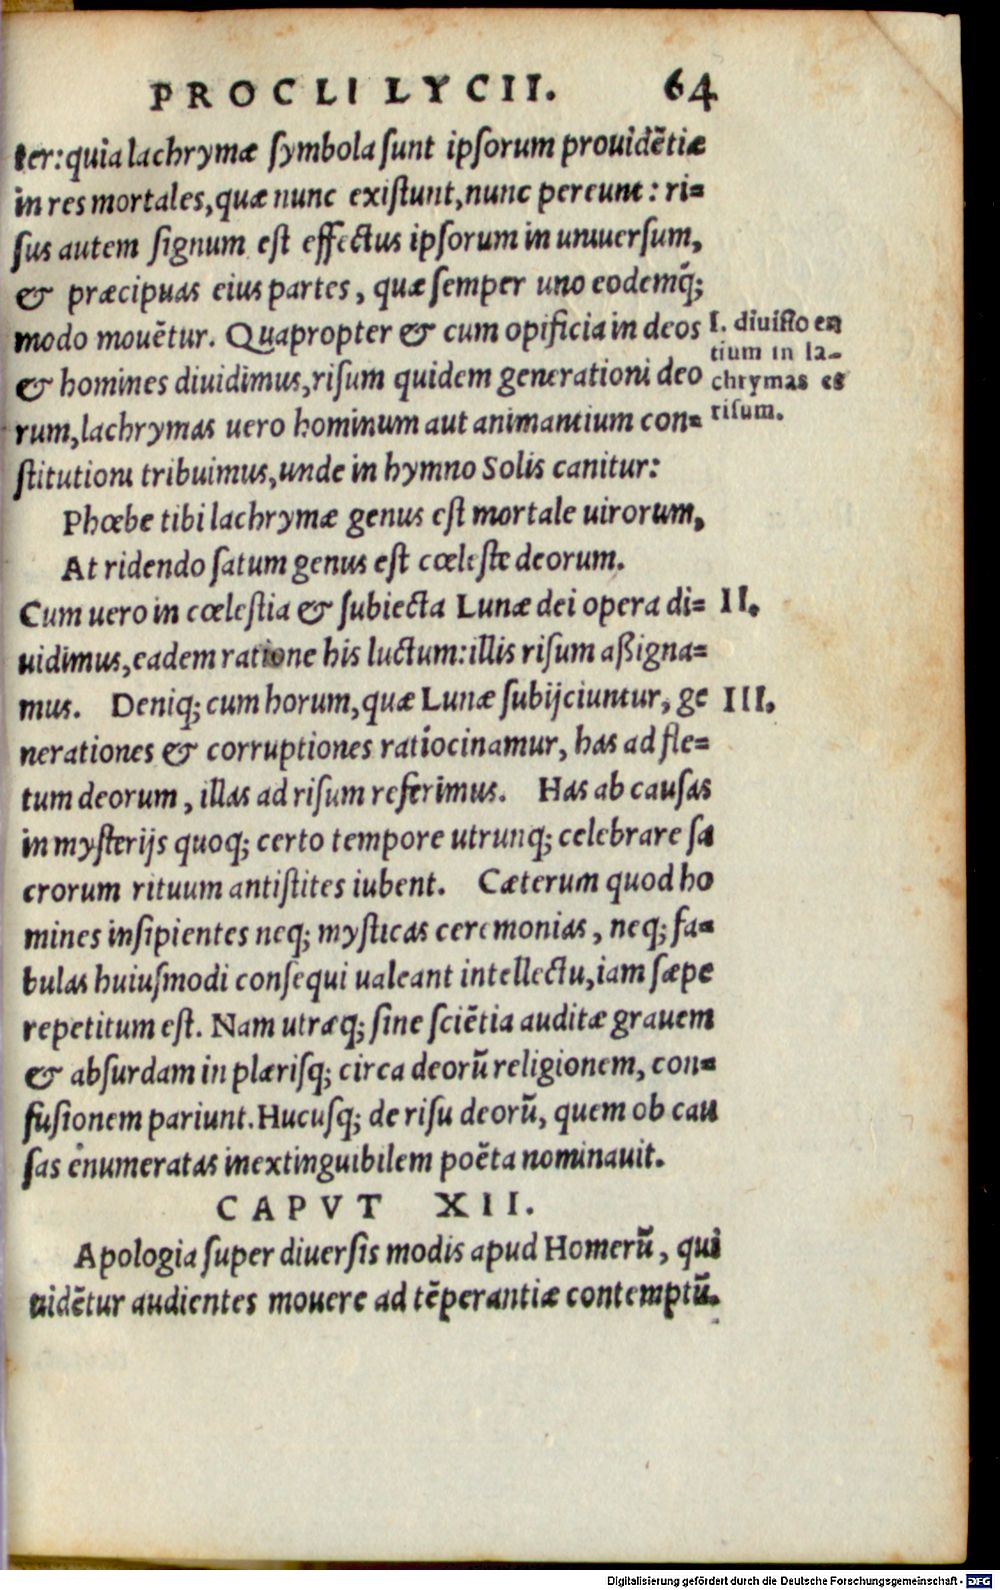 PROCLI LYCII. 64
ter: quia lachrymæ symbola sunt ipsorum prouidẽtiæ
in res mortales, quæ nunc existunt, nunc pereunt: ri=
sus autem signum est effectus ipsorum in uniuersum,
& præcipuas eius partes, quæ semper uno eodemq́;
modo mouẽtur. Quapropter & cum opificia in deos
& homines diuidimus, risum quidem generationi deo
rum, lachrymas uero hominum aut animantium con=
stitutioni tribuimus, unde in hymno Solis canitur:
I. diuisio en
tium in la-
chrymas et
risum.
Phœbe tibi lachrymæ genus est mortale uirorum,
At ridendo satum genus est cœleste deorum.
Cum uero in cœlestia & subiecta Lunæ dei opera di= II.
uidimus, eadem ratione his luctum: illis risum aßigna=
mus. Deniq; cum horum, quæ Lunæ subijciuntur, ge III.
nerationes & corruptiones ratiocinamur, has ad fle=
tum deorum, illas ad risum referimus. Has ab causas
in mysterijs quoq; certo tempore utrunq; celebrare sa
crorum rituum antistites iubent. Cæterum quod ho
mines insipientes neq; mysticas ceremonias, neq; fa=
bulas huiusmodi consequi ualeant intellectu, iam sæpe
repetitum est. Nam utræq; sine sciẽtia auditæ grauem
& absurdam in plærisq; circa deorũ religionem, con=
fusionem pariunt. Hucusq; de risu deorũ, quem ob cau
sas enumeratas inextinguibilem poëta nominauit.
CAPVT XII.
Apologia super diuersis modis apud Homerũ, qui
uidẽtur audientes mouere ad tẽperantiæ contemptũ.
Digitalisierung gefördert durch die Deutsche Forschungsgemeinschaft - DFG